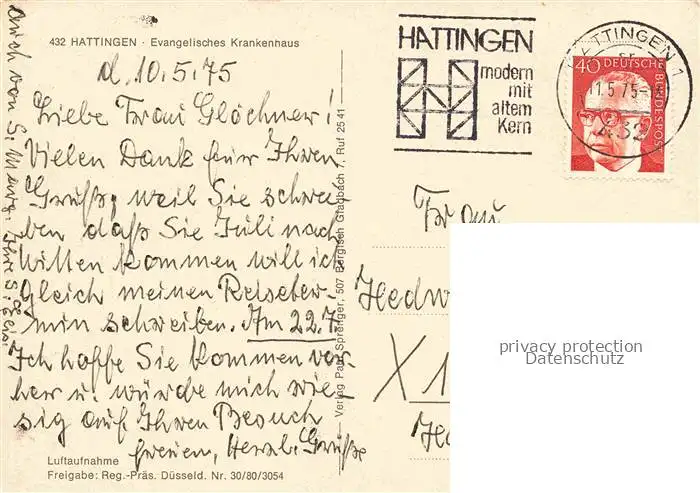 432 HATTINGEN · Evangelisches Krankenhaus
d. 10.5.75
Liebe Frau Glöckner!
Vielen Dank für Ihren
Gruß, weil Sie schrei-
ben daß Sie Juli nach
Witten kommen will ich
gleich meinen Reiseter-
min schreiben. Am 22.7.
Ich hoffe Sie kommen vor-
her u. würde mich rie-
sig auf Ihren Besuch
freuen, Herzl. Grüße
auch von S. Marg. Ihre S. Elis.
Luftaufnahme
Freigabe: Reg.-Präs. Düsseld. Nr. 30/80/3054
Verlag Paul Sprenger, 507 Bergisch Gladbach 7, Ruf 25 41
HATTINGEN
modern
mit
altem
Kern
HATTINGEN 1
11.5.75
432
40 DEUTSCHE
BUNDESPOST
Frau
Hedw
X 1
privacy protection
Datenschutz